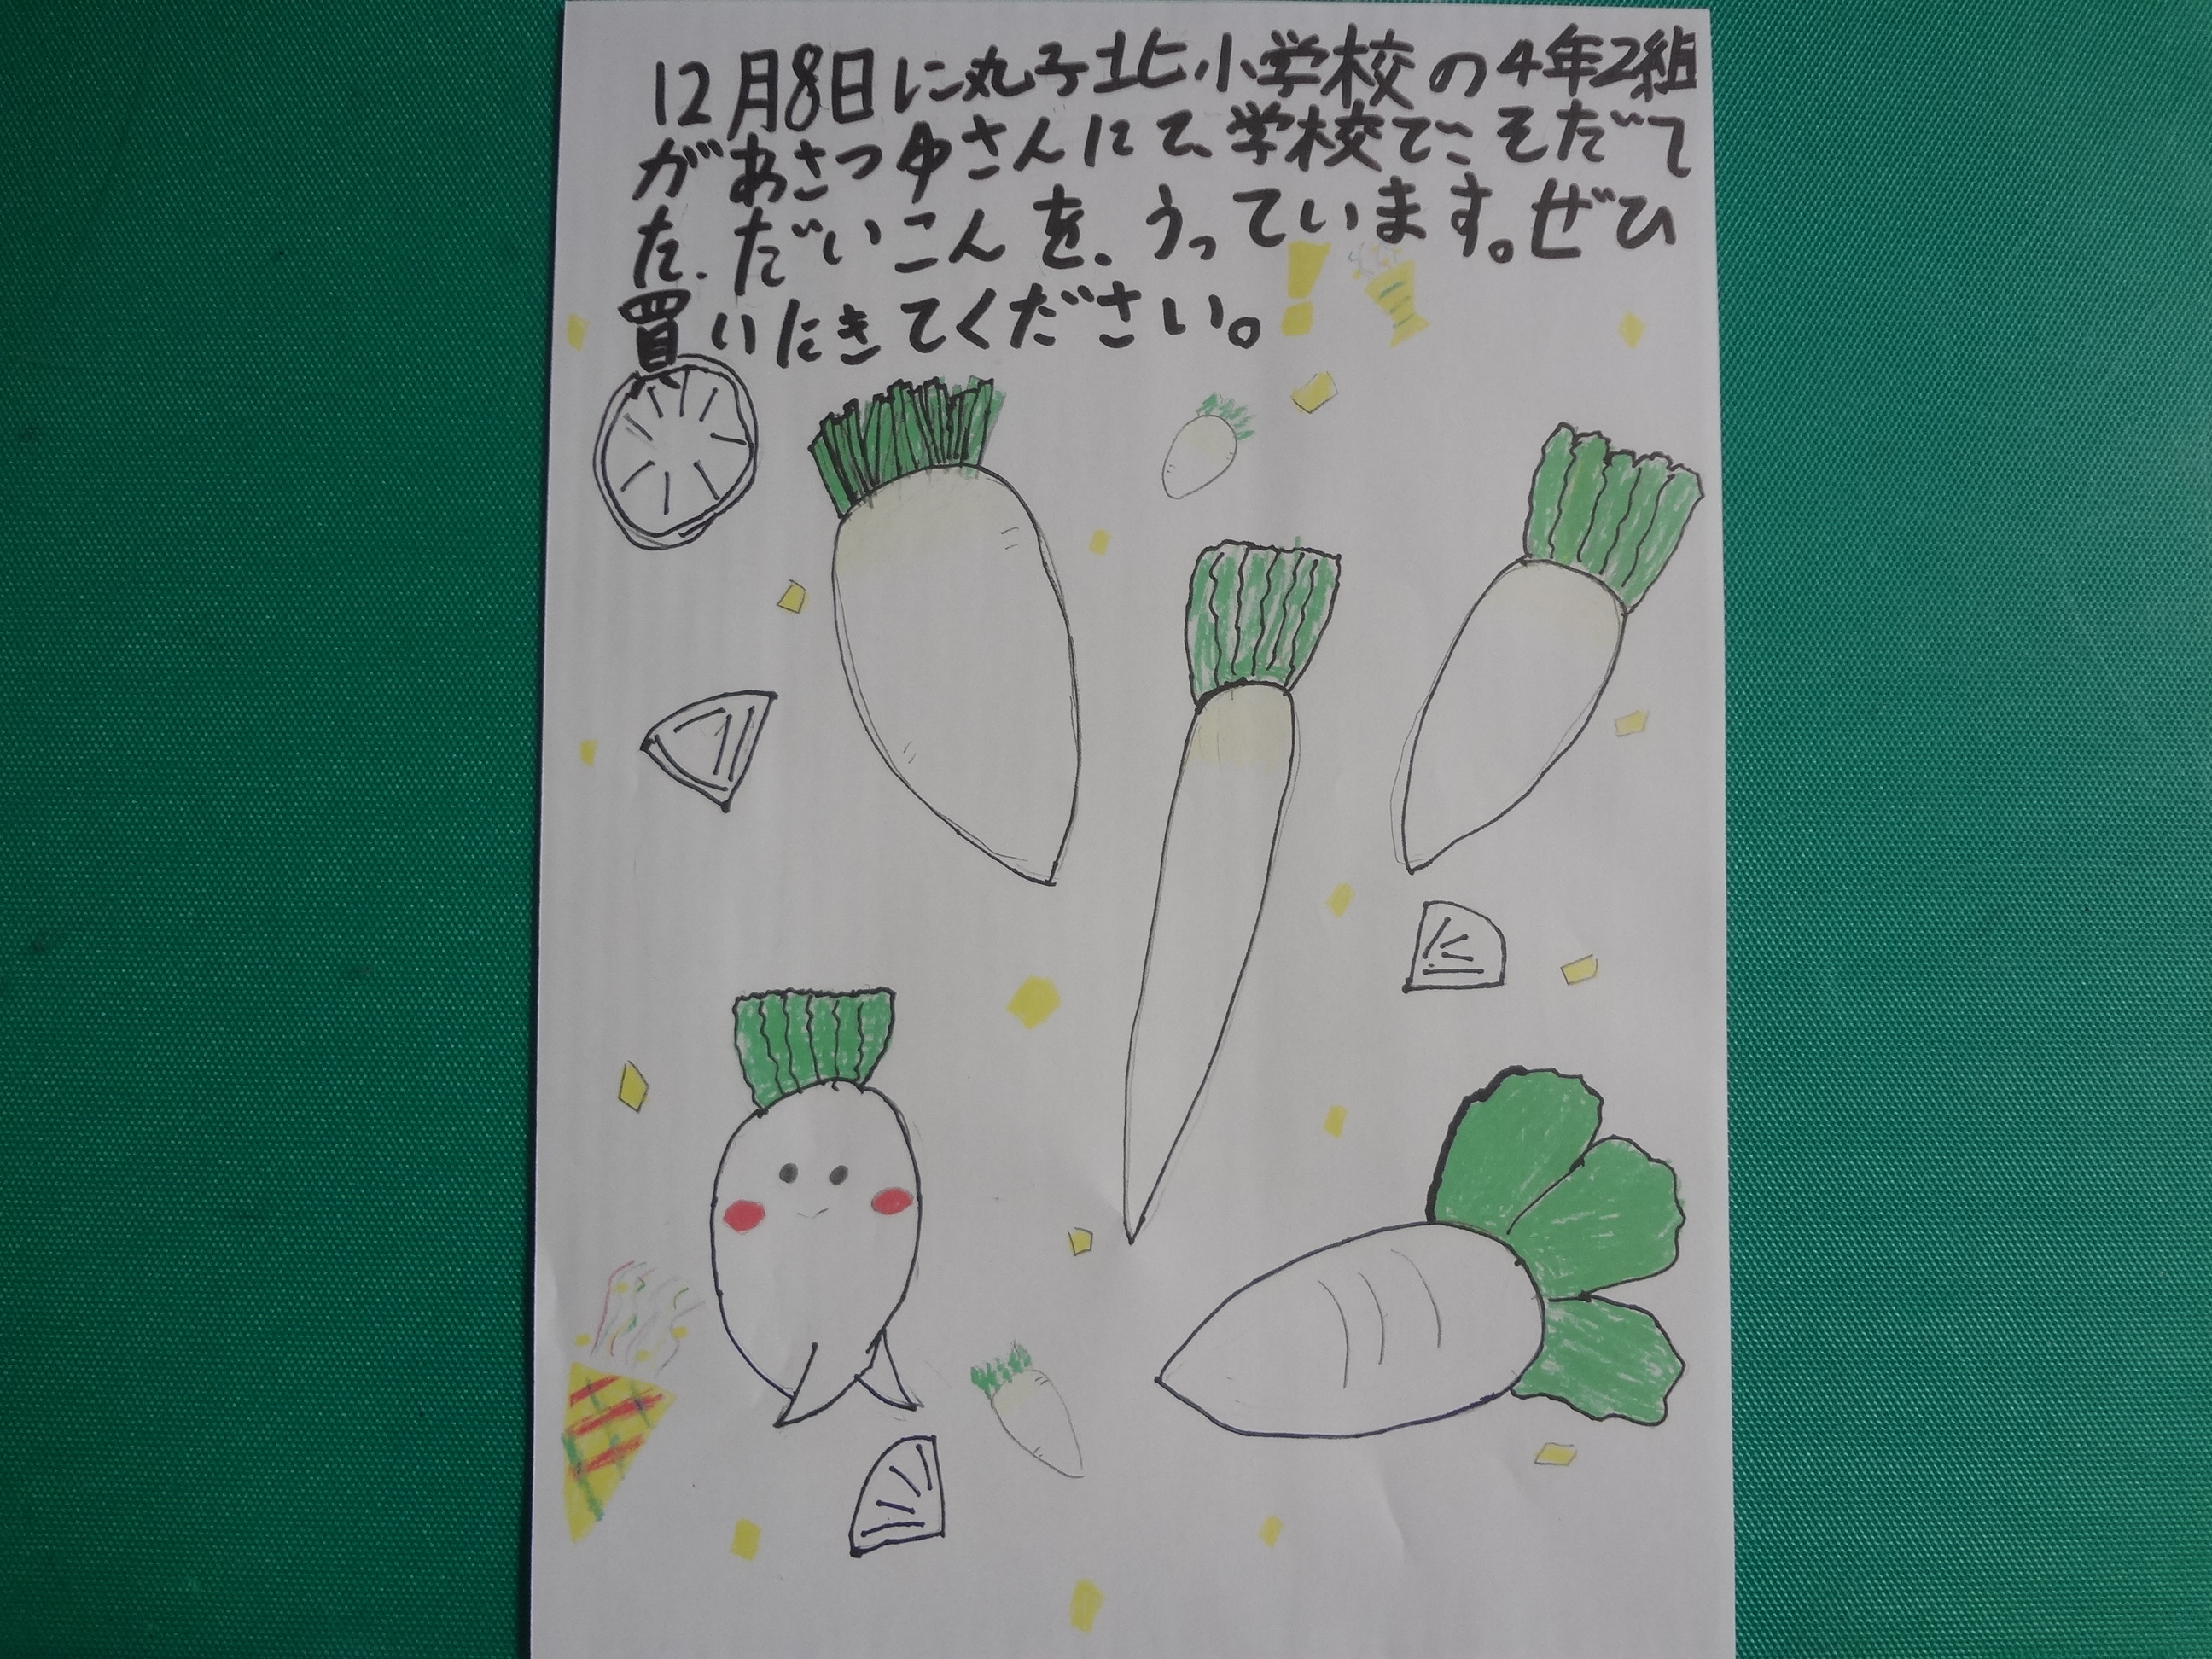 12月8日に丸子北小学校の4年2組
があさつゆさんにて、学校でそだて
た、だいこんを、うっています。ぜひ
買いにきてください。